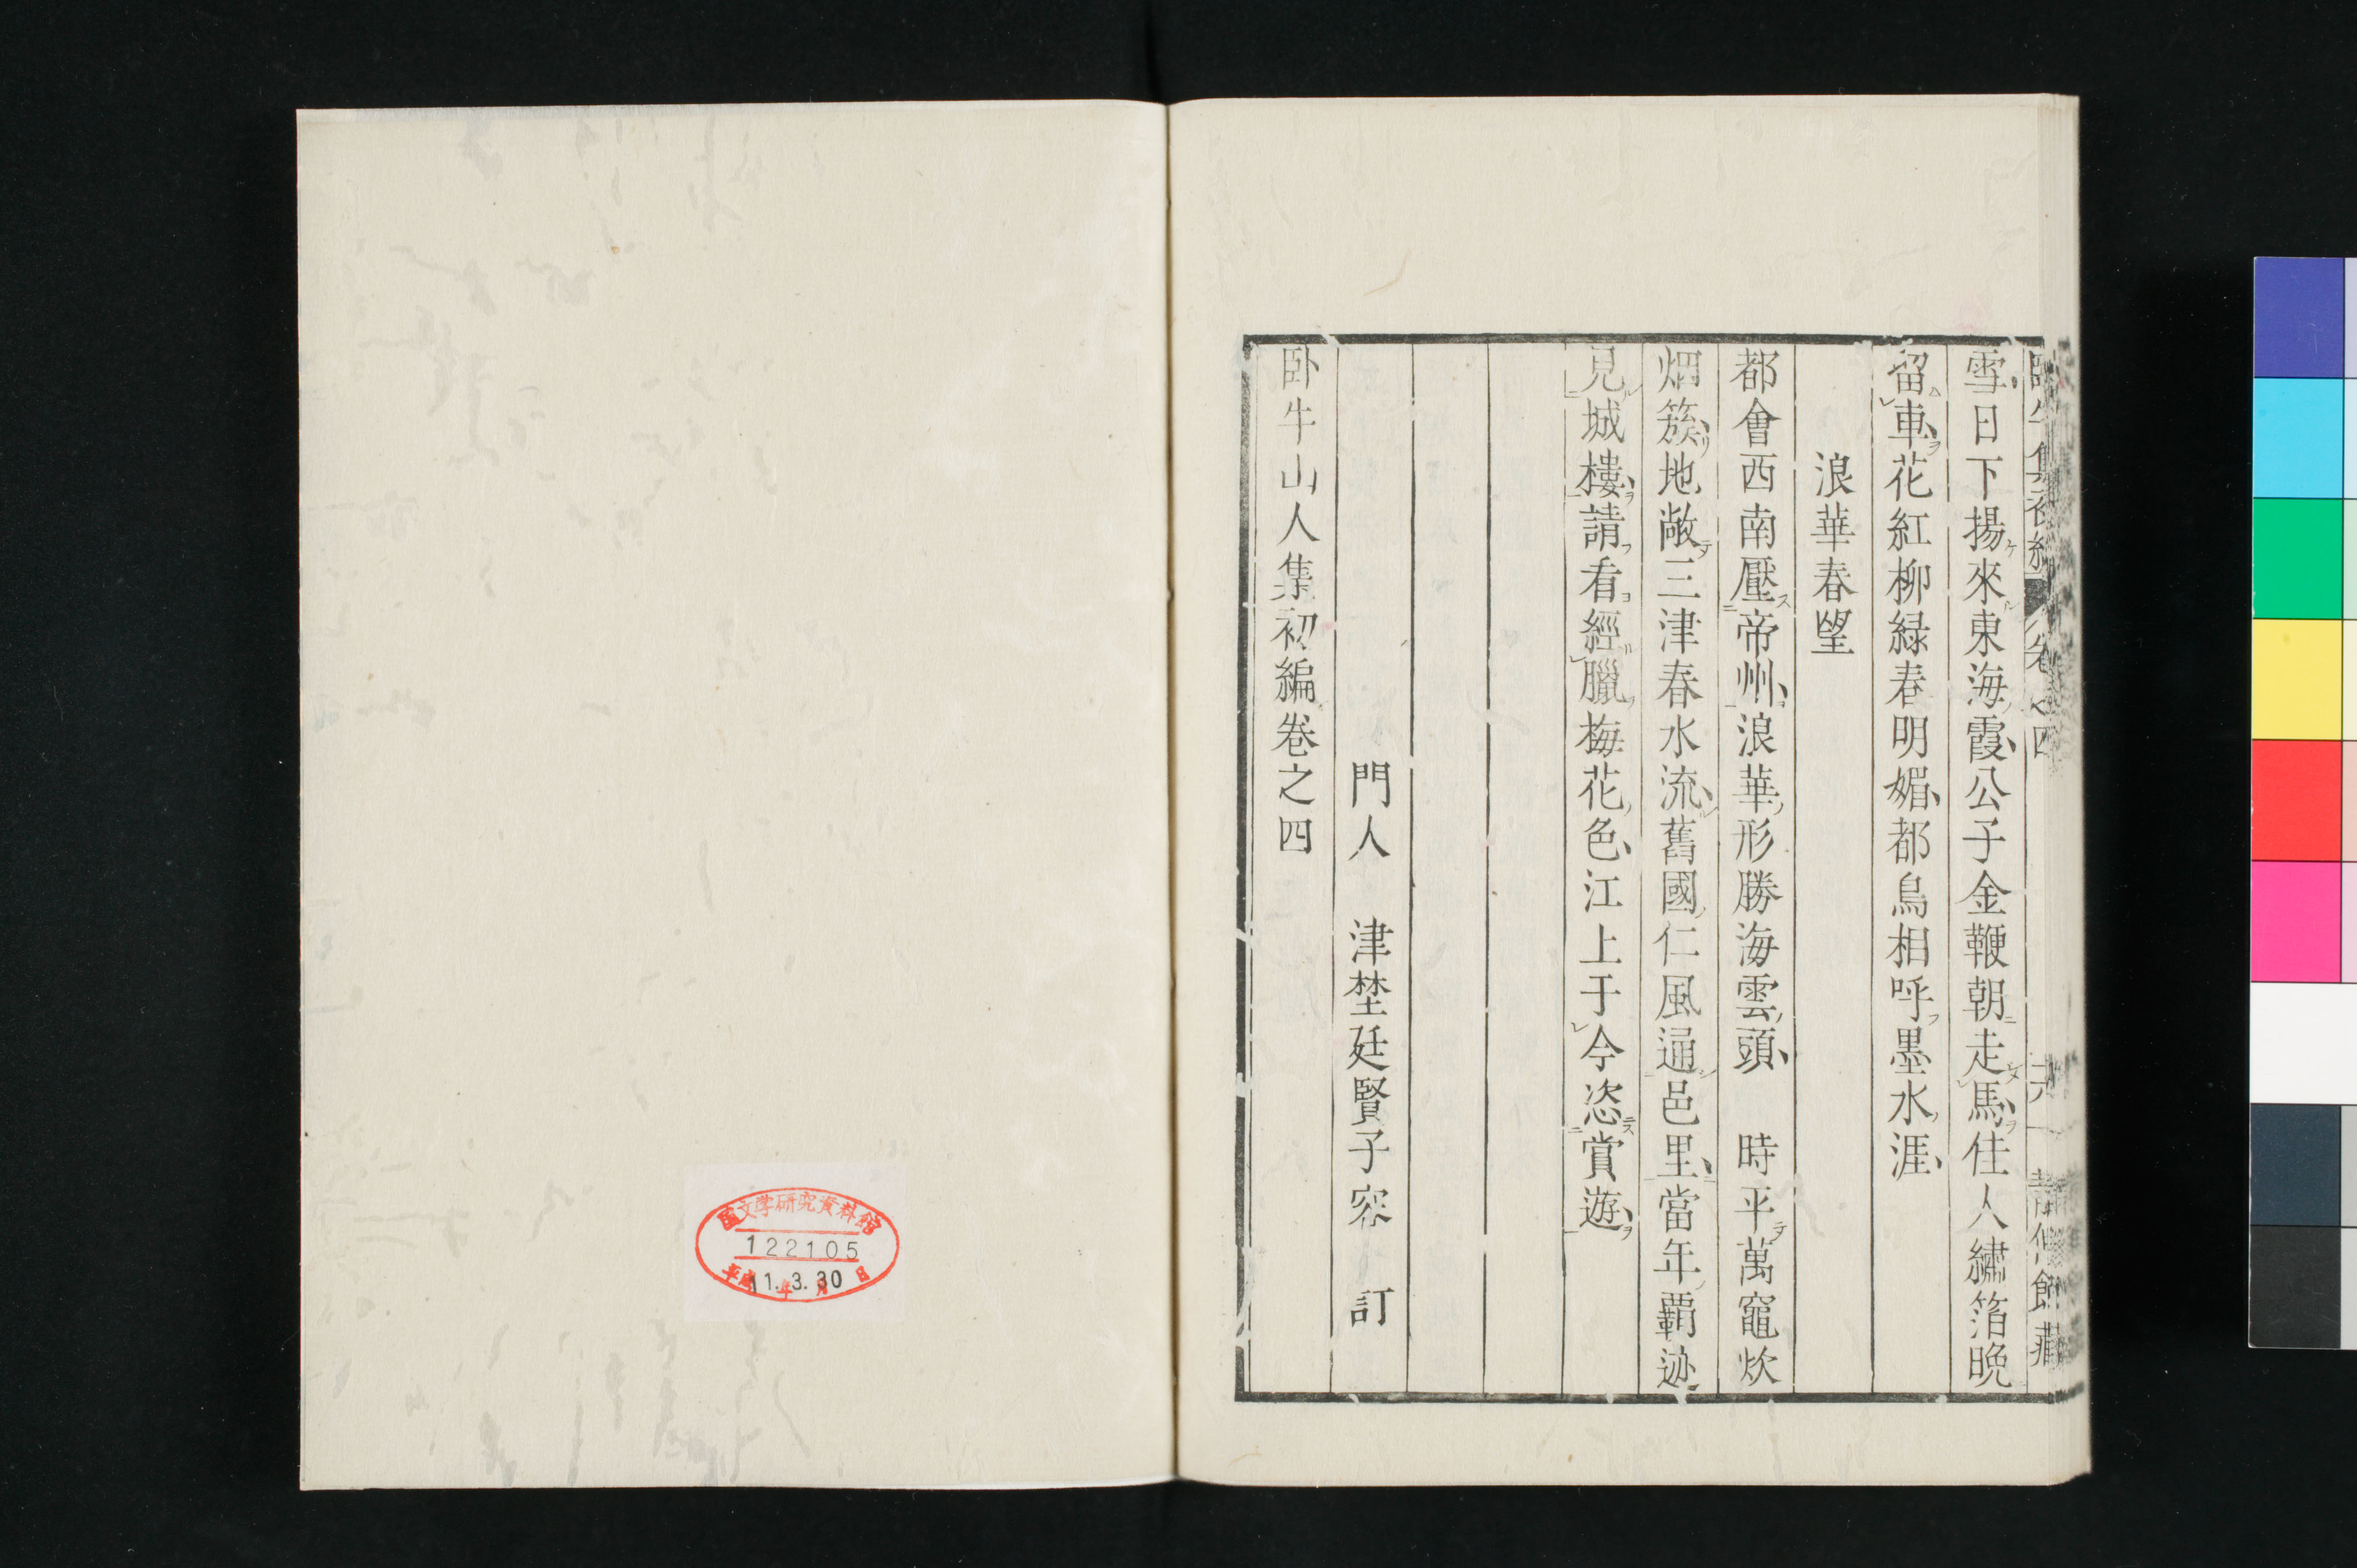 雪日下揚來東海霞公子金鞭朝走馬佳人繡箔晩
留車花紅柳緑春明媚都鳥相呼墨水涯
浪華春望
都會西南壓帝州浪華形勝海雲頭 時平萬竈炊
烟簇地敞三津春水流舊國仁風通邑里當年覇迹
見城樓請看經臘梅花色江上于今恣賞遊
門人 津埜廷賢子容 訂
卧牛山人集初編卷之四
国文学研究資料館
122105
平成11年3月30日